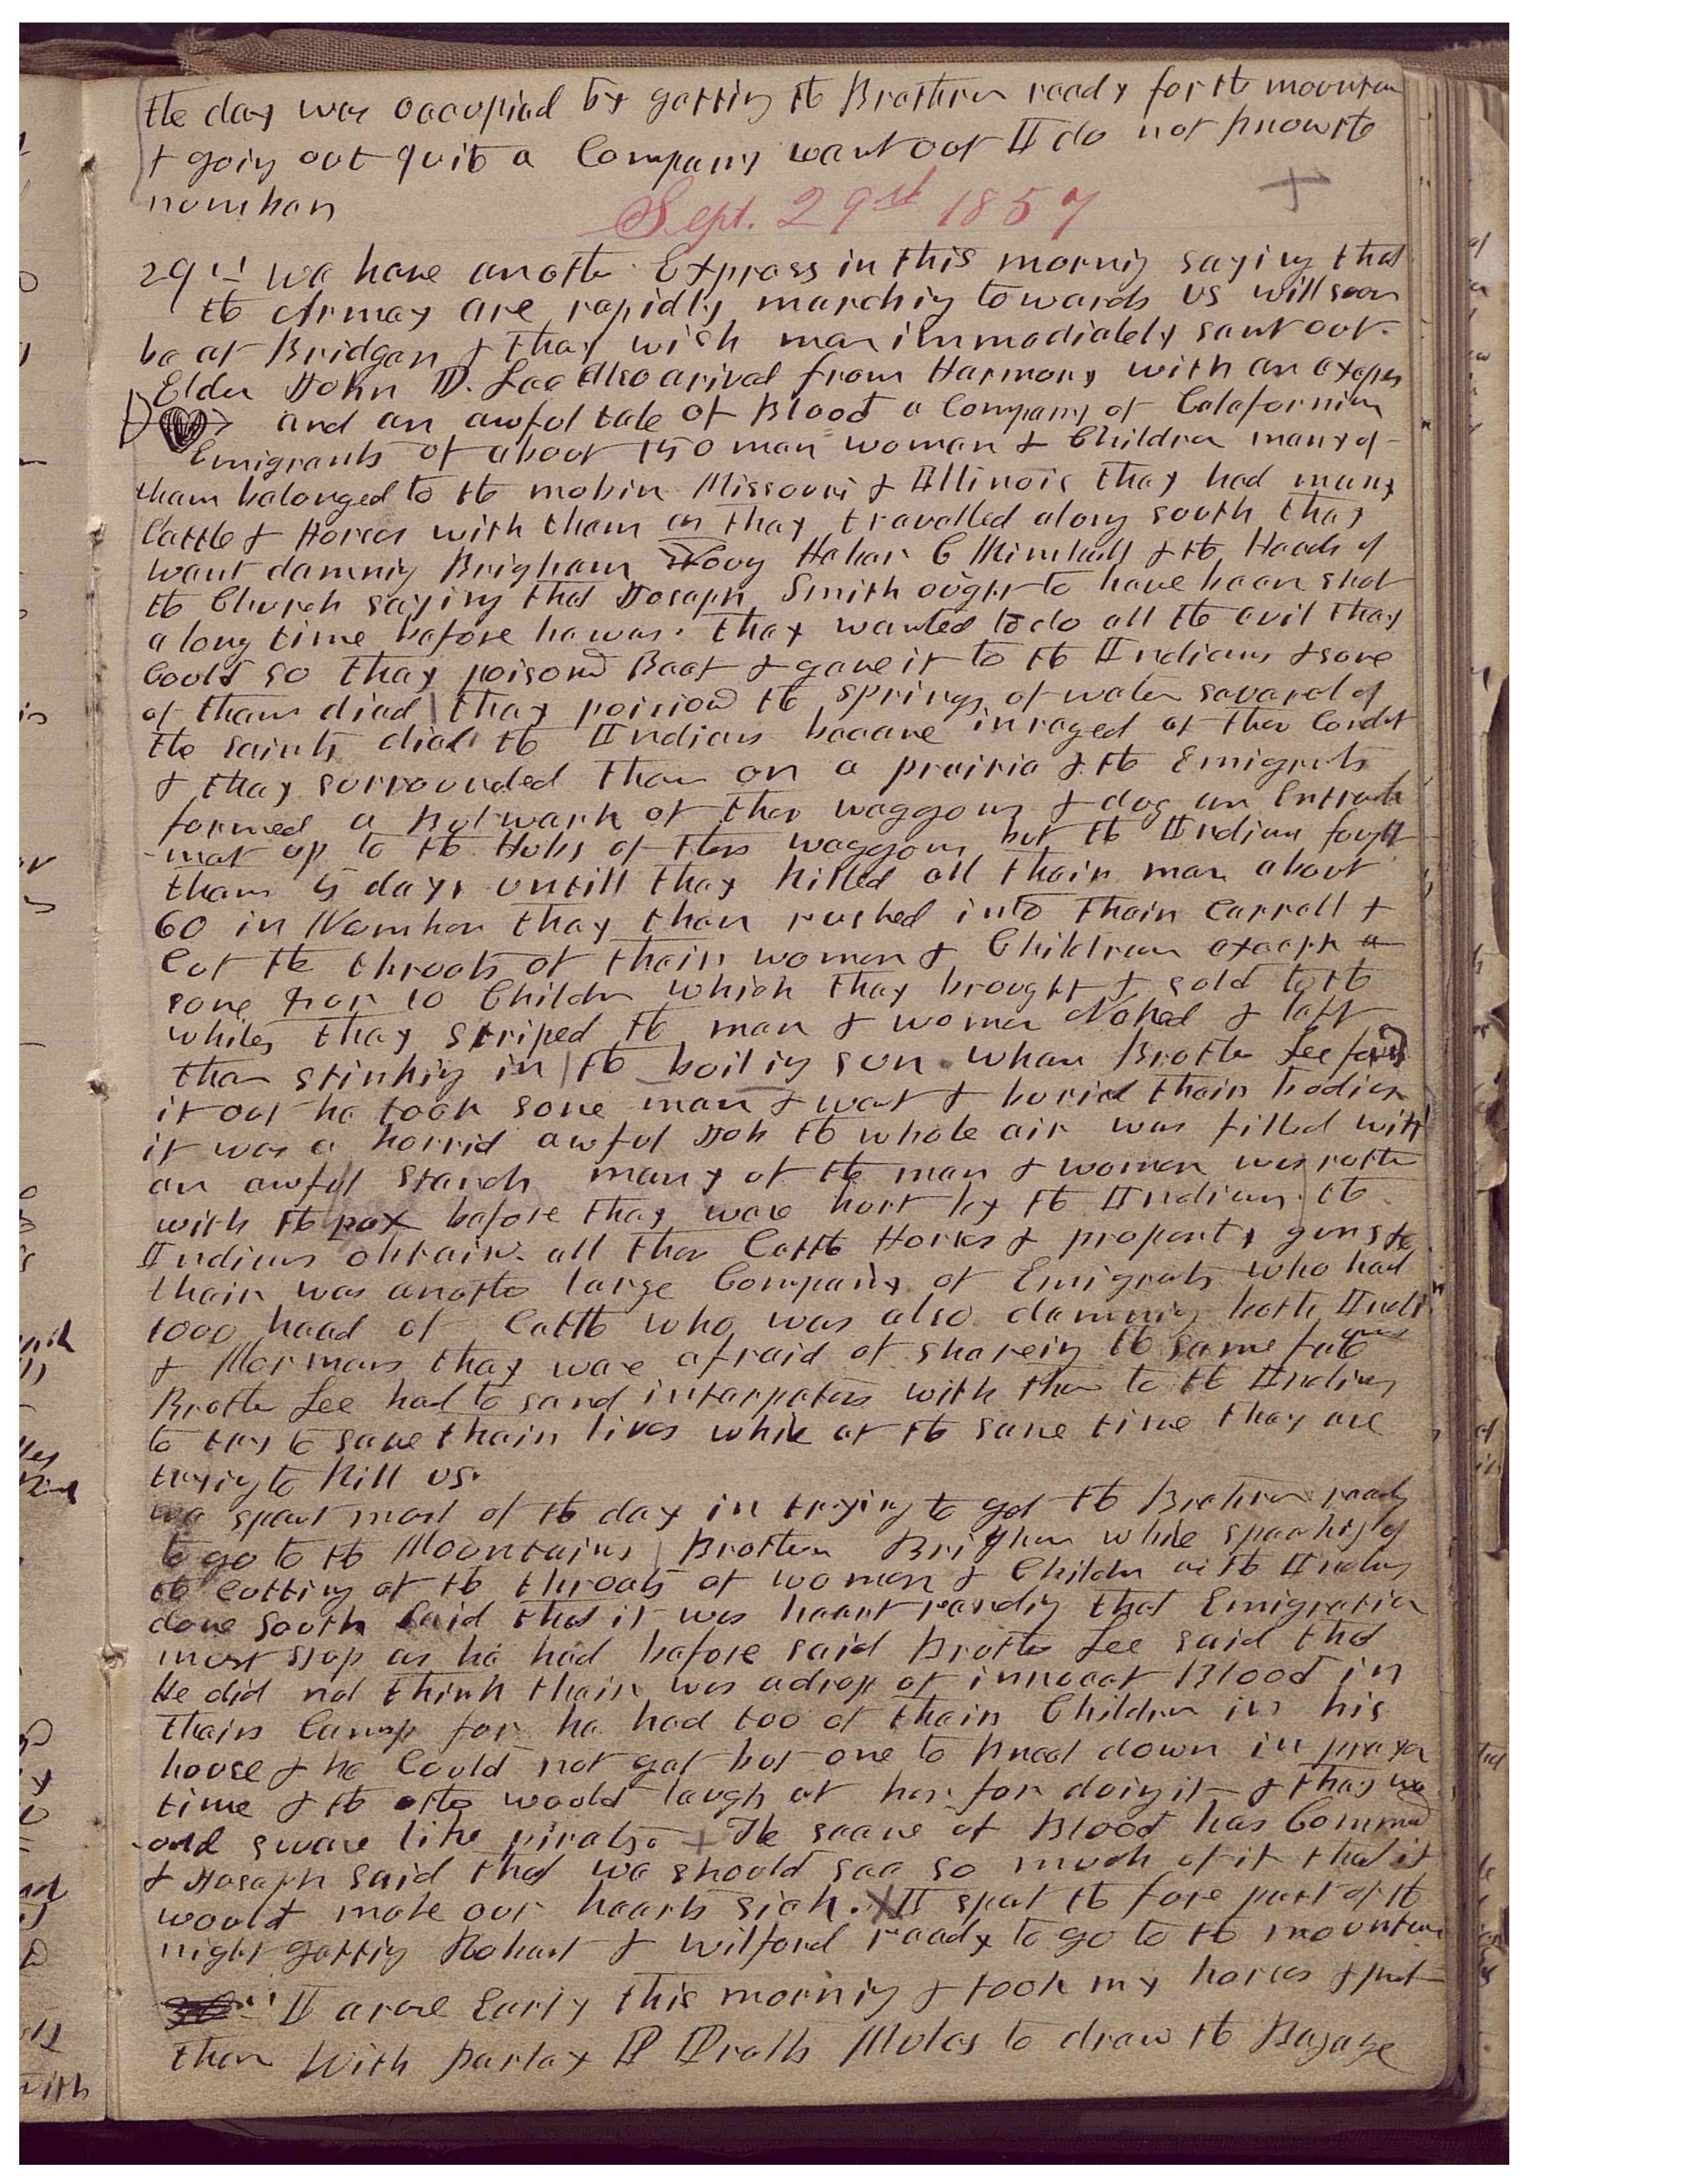 the day was occupied by getting the Brethren ready for the mountain
& going out quite a Company went out I do not know the
number
Sept. 29st 1857
29th We have another Express in this morning saying that
the Armey are rapidly marching towards us will soon
be at Bridger & they wish men immediately sent out.
Elder John D. Lee also arived from Harmony with an expres
and an awful tale of Blood a Company of Calafornian
Emigrants of about 150 men women & Children many of
them belonged to the mob in Missouri & Illinois they had many
Cattle & Horses with them as they travelled along south they
went damning Brigham Young Heber C Kimball & the Heads of
the Church saying that Joseph Smith ought to have been shot
a long time before he was. they wanted to do all the evil they
Could so they poisond Beef & gave it to the Indians & some
of them died they poisiond the springs of water several of
the saints died the Indians became inraged at ther Condut
& they surrounded them on a prairie & the Emigrants
formed a bulwark of ther waggons & dug an Entrench
ment up to the Hubs of ther waggons but the Indians fought
them 5 days untill they killed all their men about
60 in Number they then rushed into their Carrall &
Cut the throats of their women & Children except a
some 8 or 10 Children which they brought & sold to the
whites they striped the men & women Naked & left
them stinking in the boiling sun when Brother Lee found
it out he took some men & went & buried their bodies
it was a horrid awful Job the whole air was filled with
an awful stench many of the men & women was rotten
with the pox before they were hurt by the Indians the
Indians obtain all ther Cattle Horses & property guns &c
their was another large Company of Emigrants who had
1000 head of Cattle who was also damning both Indians
& Mormons they were afraid of shareing the same fate
Brother Lee had to send interpeters with them to the Indians
to try to save their lives while at the same time they are
trying to kill us.
we spent most of the day in trying to get the Brethren ready
to go to the Mountains Brother Brigham while speaking of
the Cutting of the throats of women & Children as the Indians
done South Said that it was heart rending that Emigration
must stop as he had before said Brother Lee said that
He did not think their was a drop of innocet Blood in
their Camp for he had too of their Children in his
house & he Could not get but one to kneel down in prayer
time & the other would laugh at her for doing it & they wo
uld sware like pirates + The scene of Blood has Commend
& Joseph said that we should see so much of it that it
would make our hearts sick. X I spet the fore part of the
night getting Robert & Wilford ready to go to the mountain
30th I arose Early this morning & took my horses & put
them With Parley P Pratts Mules to draw the Bagage